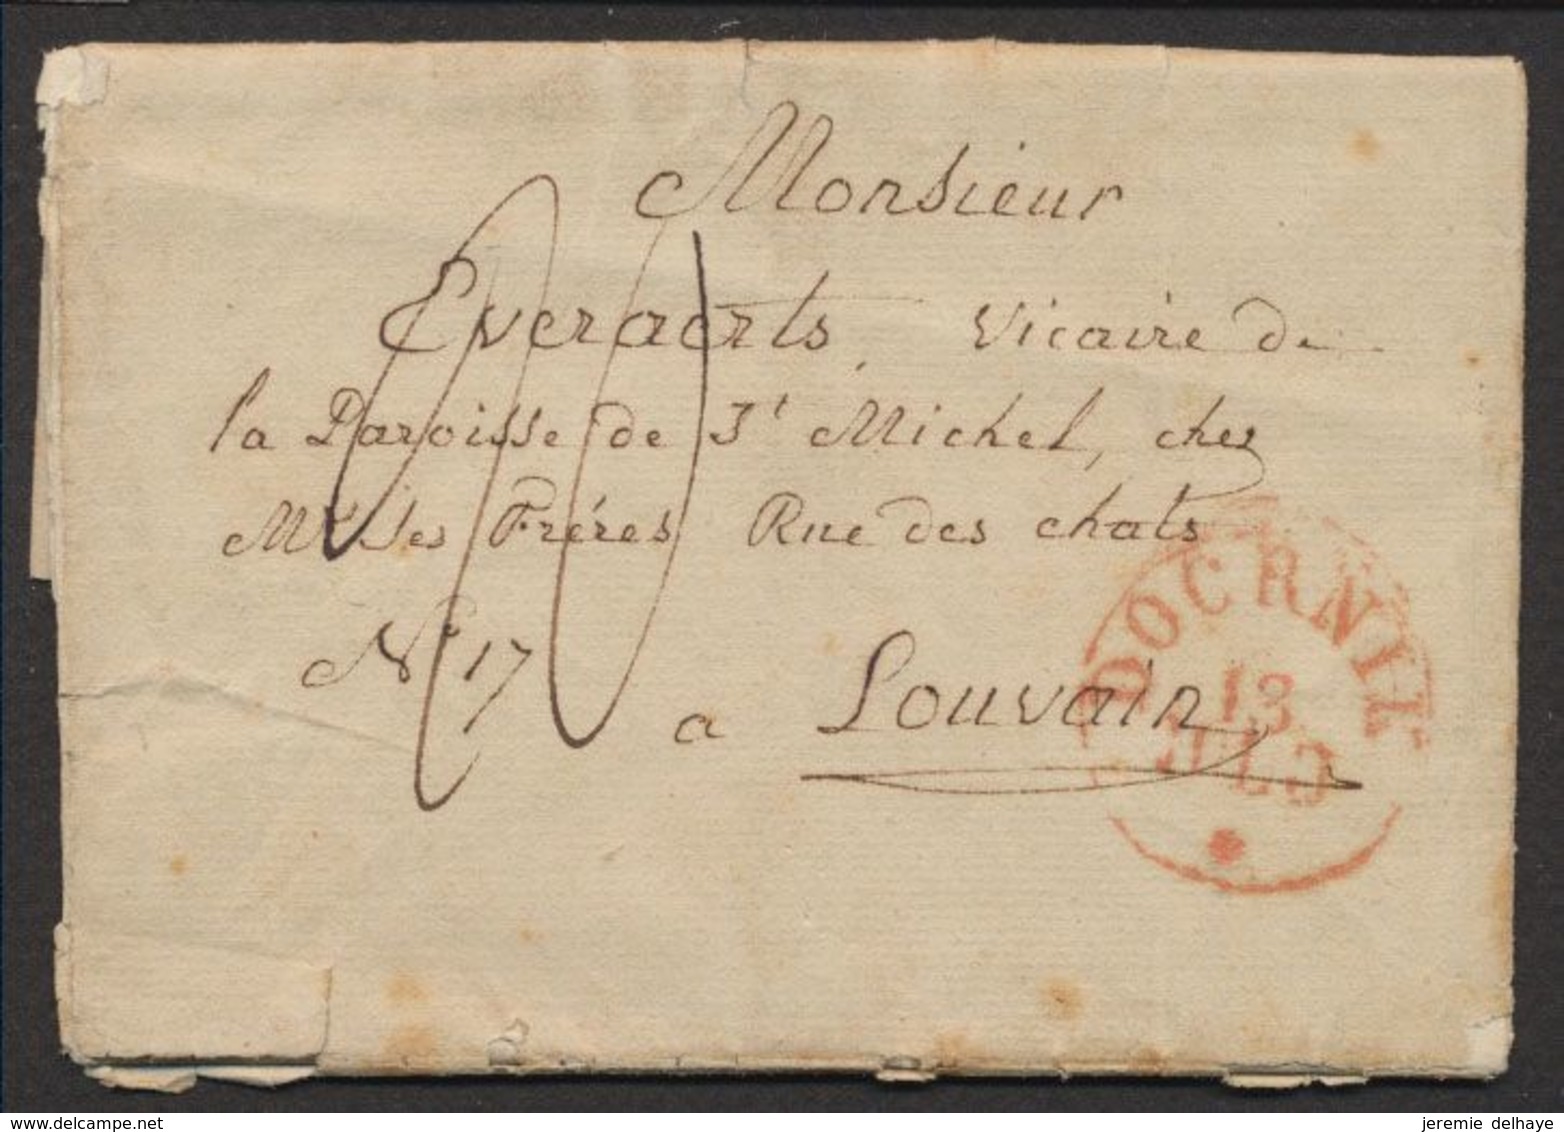 Monsieur
Everaerts Vicaire de
la Paroisse de St Michel, chez
Mrs les Fréres Rue des chats
No 17
a Louvain
DOORNIK
13
JULJ
delcampe.net
jeremie delhaye